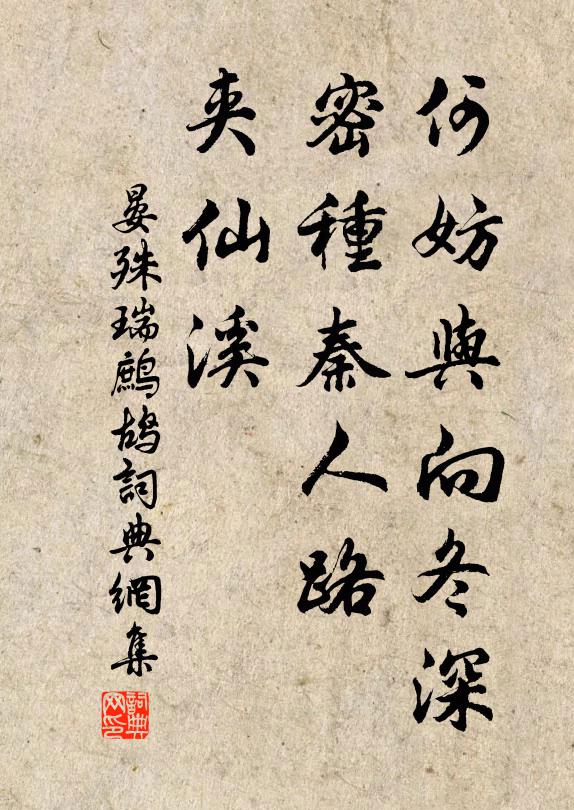 何妨與向冬深
密種秦人路
夾仙溪
晏殊瑞鷓鴣詞典網集
詞典網印